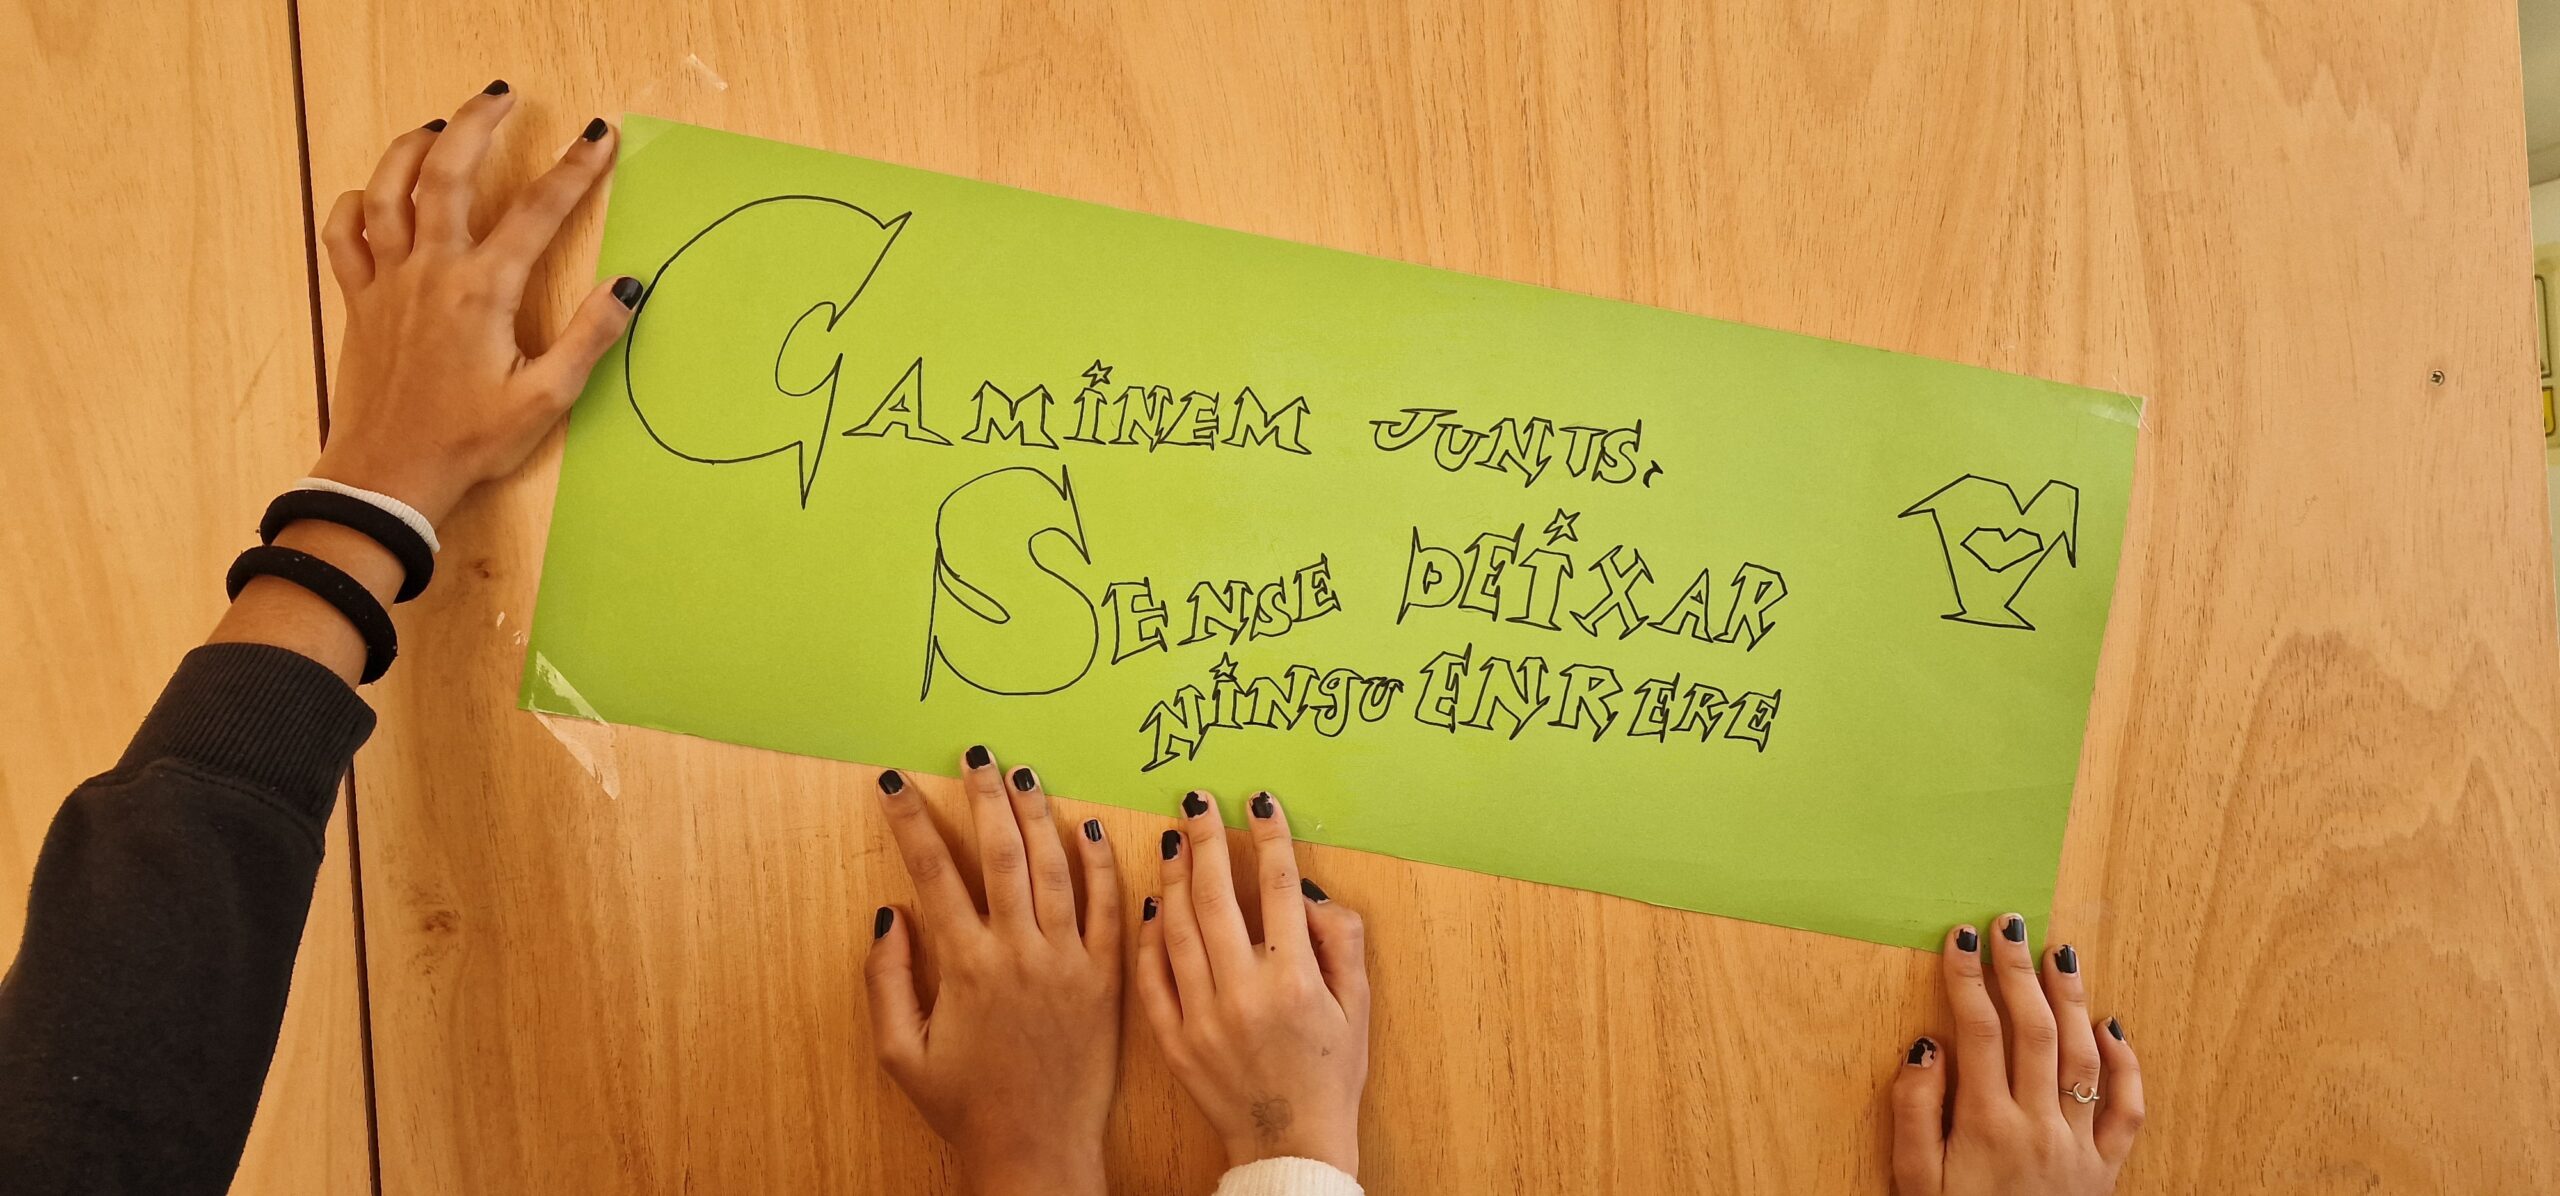 CAMINEM JUNTS,
SENSE DEIXAR
NINGU ENRERE